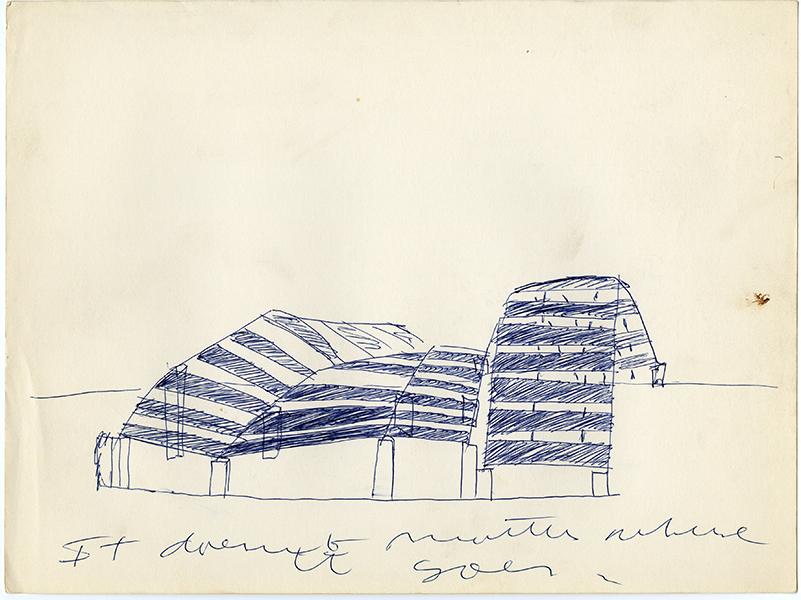 It doesn't matter where
it goes.